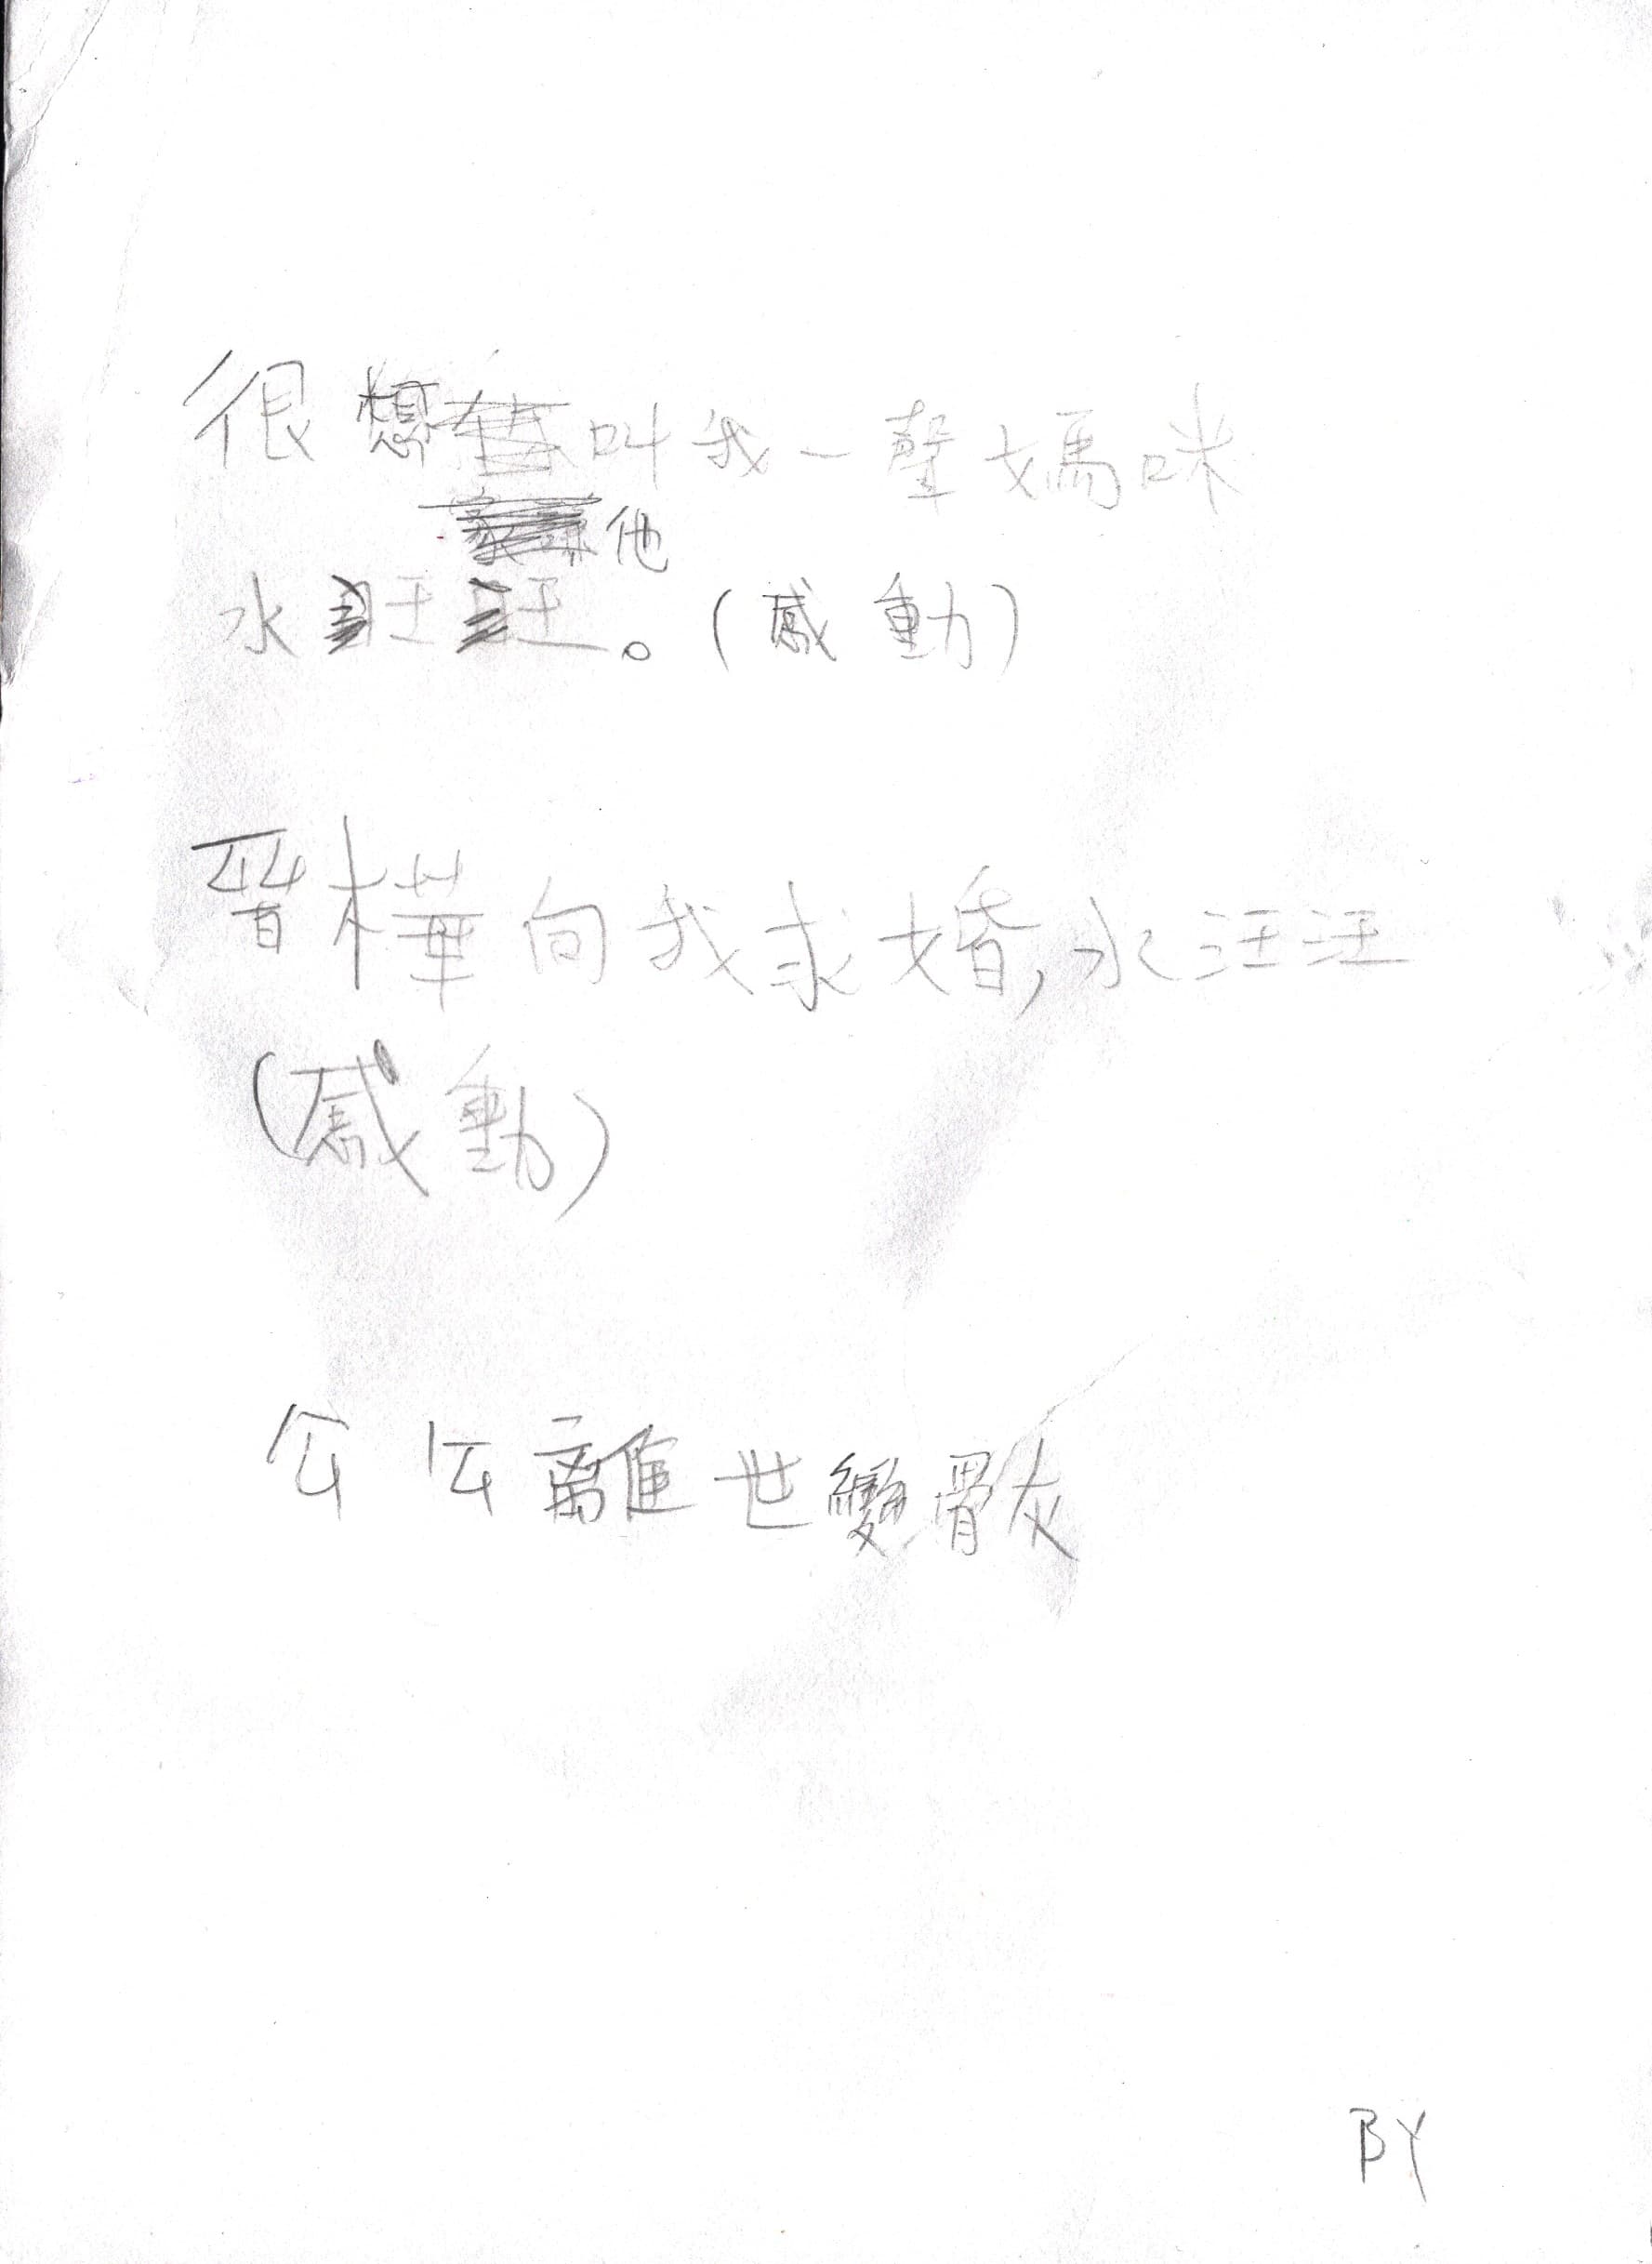 很想叫我一聲媽咪
他
水汪汪。(感動)
晉樺向我求婚,水汪汪
(感動)
公公離世變骨灰
BY